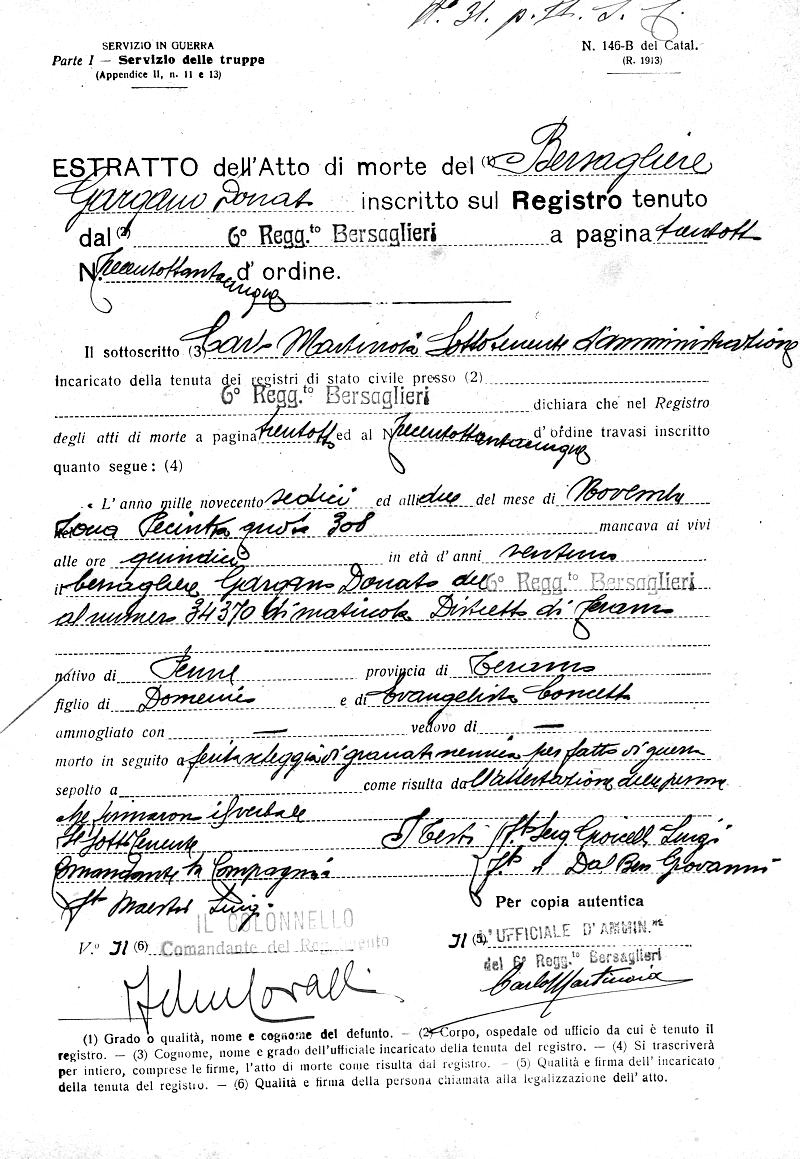 N. 31. p. II. S. C.
SERVIZIO IN GUERRA
Parte I — Servizio delle truppe
(Appendice II, n. 11 e 13)
N. 146-B del Catal.
(R. 1913)
ESTRATTO dell'Atto di morte del (1) Bersagliere
Gargano Donato inscritto sul Registro tenuto
dal (2) 6º Regg.to Bersaglieri a pagina trentotto
N. Trecentottantacinque d'ordine.
Il sottoscritto (3) Carlo Martinoia Sottotenente d'amministrazione
Incaricato della tenuta dei registri di stato civile presso (2)
6º Regg.to Bersaglieri dichiara che nel Registro
degli atti di morte a pagina trentotto ed al N. Trecentottantacinque d'ordine travasi inscritto
quanto segue: (4)
« L'anno mille novecento sedici ed alli due del mese di Novembre
Zona Pecinka quota 308 mancava ai vivi
alle ore quindici in età d'anni ventuno
il bersagliere Gargano Donato del 6º Regg.to Bersaglieri
al numero 34370 di matricola Distretto di Teramo
nativo di Penne provincia di Teramo
figlio di Domenico e di Evangelista Concetta
ammogliato con — vedovo di —
morto in seguito a ferita scheggia di granata nemica per fatto di guerra
sepolto a come risulta dall'attestazione delle persone
che firmarono il verbale
Il Sottotenente I Testi fto Serg Luigi
Comandante la Compagnia fto Dal Ben Giovanni
fto Maestri Luigi
Per copia autentica
IL COLONNELLO
V.º Il (6) Comandante del Reggimento
Il (5) L'UFFICIALE D'AMMIN.NE
del 6º Regg.to Bersaglieri
Carlo Martinoia
(1) Grado o qualità, nome e cognome del defunto. — (2) Corpo, ospedale od ufficio da cui è tenuto il
registro. — (3) Cognome, nome e grado dell'ufficiale incaricato della tenuta del registro. — (4) Si trascriverà
per intiero, comprese le firme, l'atto di morte come risulta dal registro. — (5) Qualità e firma dell'incaricato
della tenuta del registro. — (6) Qualità e firma della persona chiamata alla legalizzazione dell'atto.